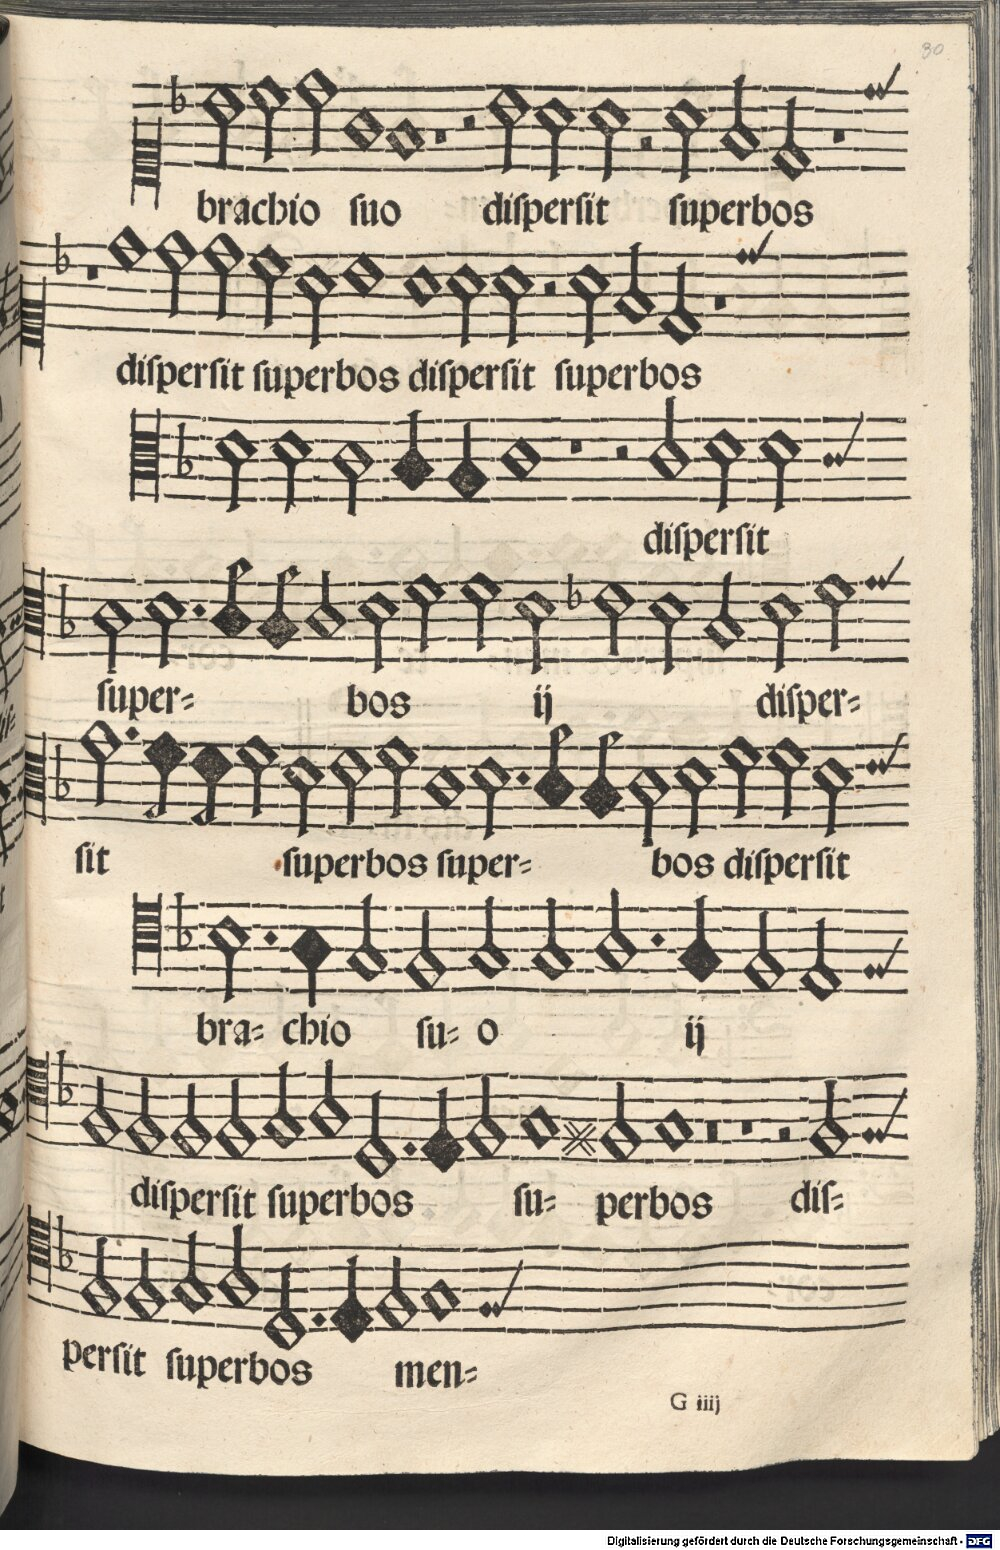 30
brachio suo dispersit superbos
dispersit superbos dispersit superbos
dispersit
super= bos ij disper=
sit superbos super= bos dispersit
bra= chio su= o ij
dispersit superbos su= perbos dis=
persit superbos men=
G iiij
Digitalisierung gefördert durch die Deutsche Forschungsgemeinschaft - DFG